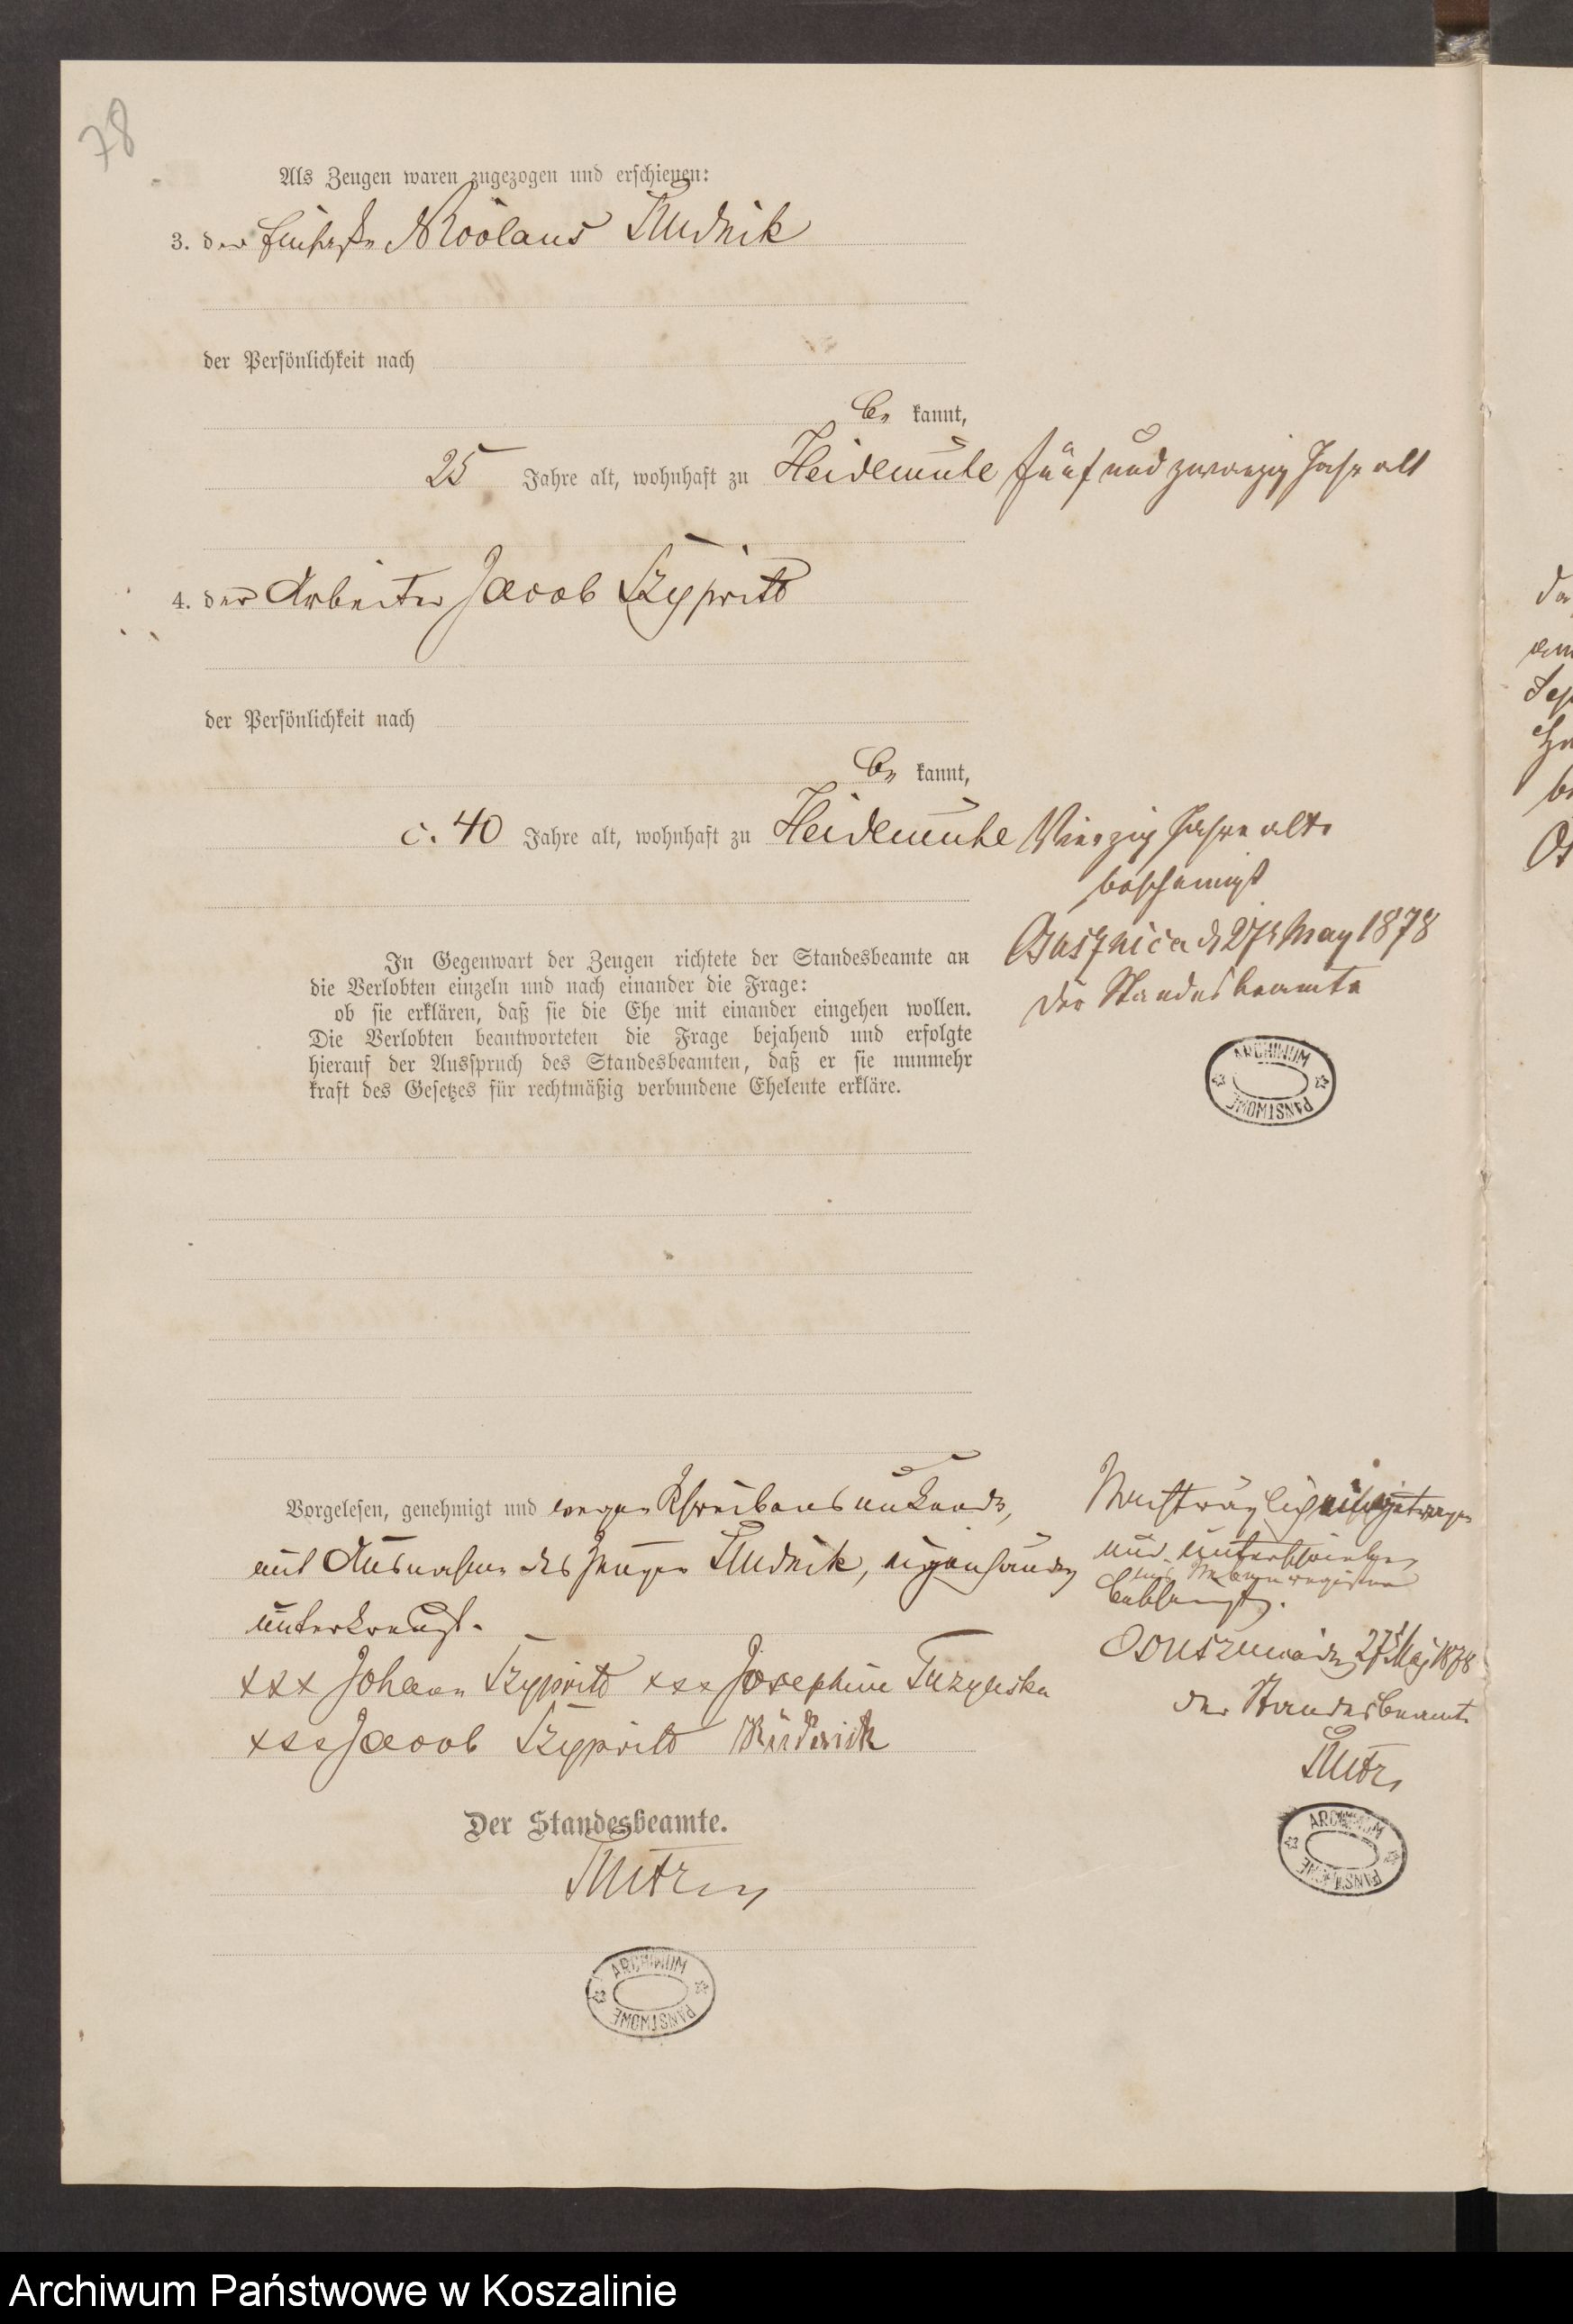 78
Als Zeugen waren zugezogen und erschienen:
3. der Nicolaus Rudnik
der Persönlichkeit nach
be kannt,
25 Jahre alt, wohnhaft zu Heidemühle fünf und zwanzig Jahr alt
4. der Arbeiter Jacob Szypritt
der Persönlichkeit nach
be kannt,
c. 40 Jahre alt, wohnhaft zu Heidemühle Vierzig Jahre alt
bescheinigt
d 27t May 1878
Der Standesbeamte
ARCHIWUM PAŃSTWOWE
In Gegenwart der Zeugen richtete der Standesbeamte an
die Verlobten einzeln und nach einander die Frage:
ob sie erklären, daß sie die Ehe mit einander eingehen wollen.
Die Verlobten beantworteten die Frage bejahend und erfolgte
hierauf der Ausspruch des Standesbeamten, daß er sie nunmehr
kraft des Gesetzes für rechtmäßig verbundene Eheleute erkläre.
Vorgelesen, genehmigt und wegen Schreibensunkunde,
mit Ausnahme des Zeugen Rudnik, eigenhändig
unterkreuzt.
xxx Johann Szypritt xxx Josephine
xxx Jacob Szypritt Rudnik
Der Standesbeamte.
ARCHIWUM PAŃSTWOWE
Nachträglich eingetragen
und unterschrieben
27t Maj 1878
der Standesbeamte
ARCHIWUM PAŃSTWOWE
Archiwum Państwowe w Koszalinie